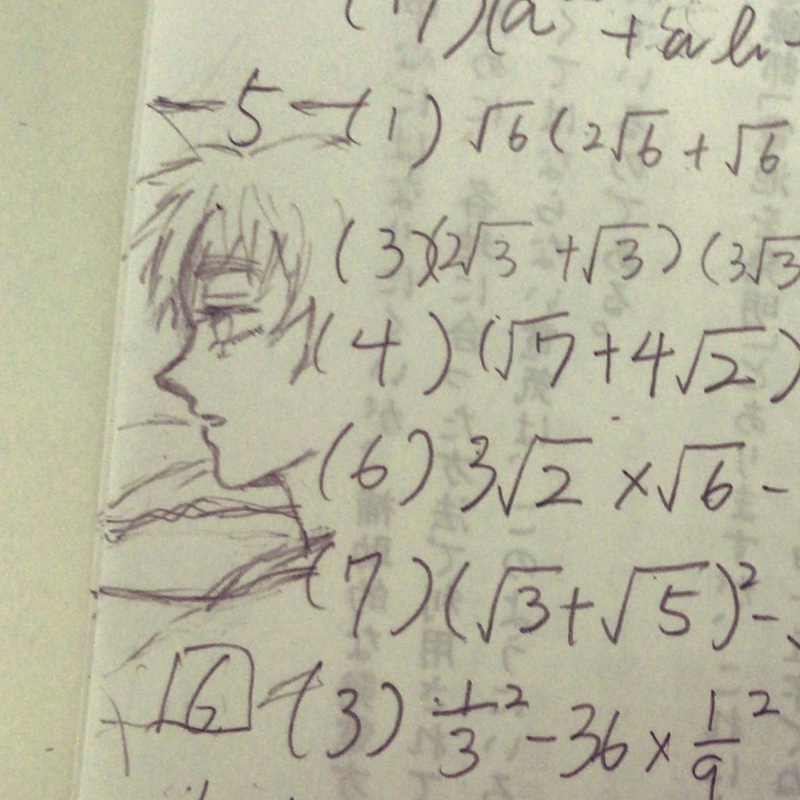 (a + ab -
5 - (1) √6(2√6 + √6
(3)(2√3 + √3)(3√3
(4)(√7 + 4√2)
(6) 3√2 × √6 -
(7)(√3 + √5)² -
6 - (3) 1/3² - 36 × 1/9²